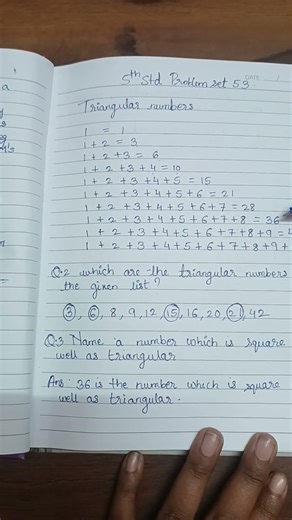 5th Std Problem set 53
DATE
Triangular numbers
1 = 1
1 + 2 = 3
1 + 2 + 3 = 6
1 + 2 + 3 + 4 = 10
1 + 2 + 3 + 4 + 5 = 15
1 + 2 + 3 + 4 + 5 + 6 = 21
1 + 2 + 3 + 4 + 5 + 6 + 7 = 28
1 + 2 + 3 + 4 + 5 + 6 + 7 + 8 = 36
1 + 2 + 3 + 4 + 5 + 6 + 7 + 8 + 9 = 4
1 + 2 + 3 + 4 + 5 + 6 + 7 + 8 + 9 +
Q.2 which are the triangular numbers
the given list?
3, 6, 8, 9, 12, 15, 16, 20, 21, 42
Q.3 Name a number which is square
well as triangular
Ans: 36 is the number which is square
well as triangular.